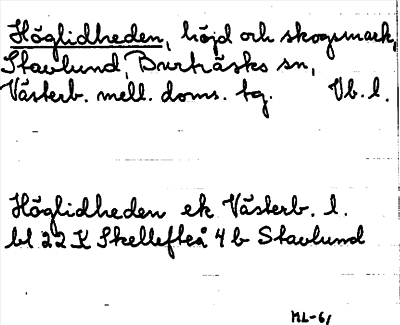 Höglidheden, höjd och skogsmark,
Stavlund, Burträsks sn,
Västerb. mell. doms. tg. Vb. l.
Höglidheden ek Västerb. l.
bl 22 K Skellefteå 4 b Stavlund
ML-61